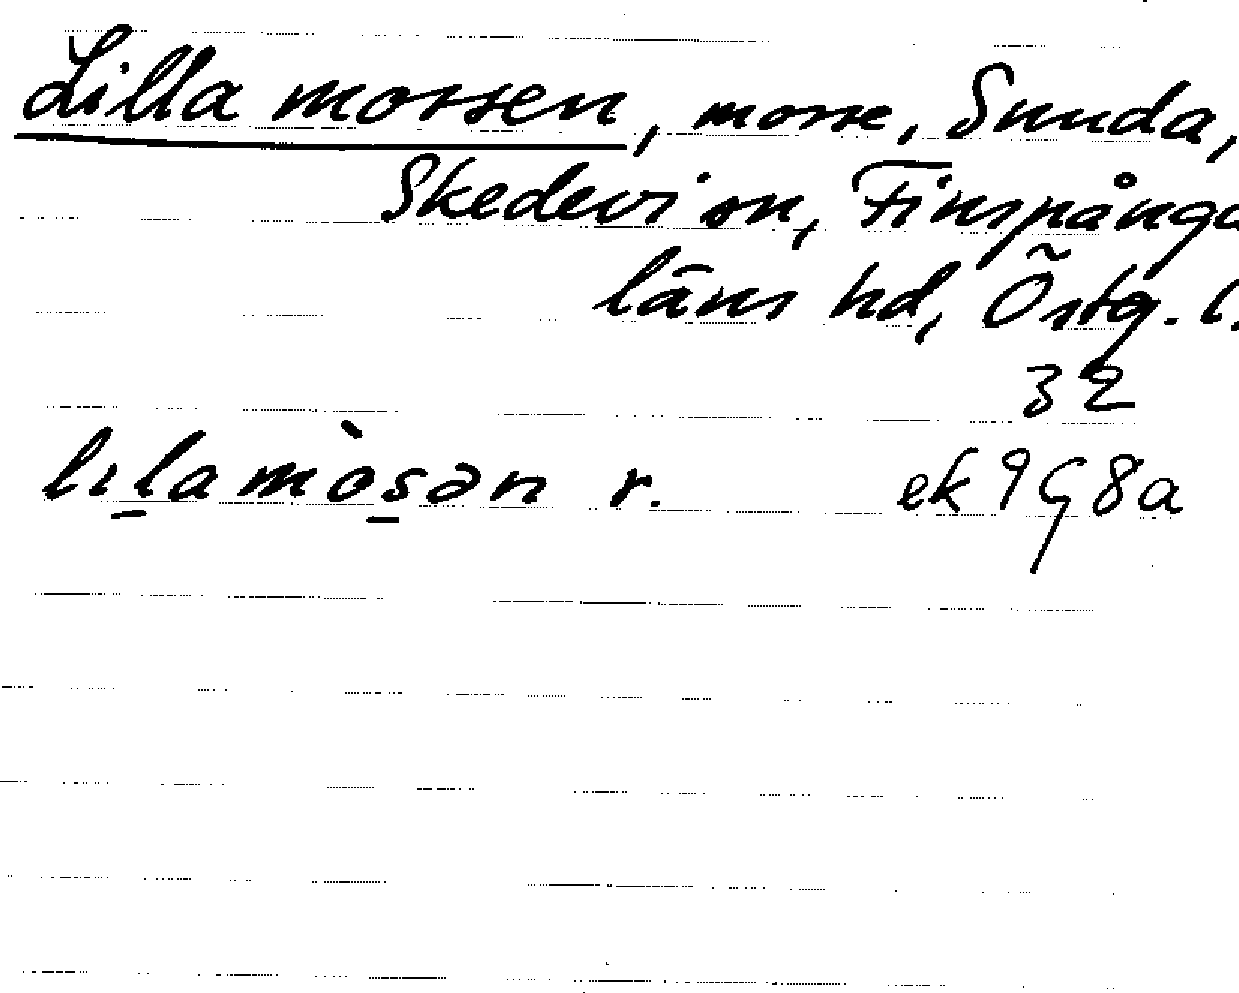 Lilla mossen, mosse, Sunda,
Skedevi sn, Finspånga
läns hd, Östg. l.
32
lılamòsən r. ek 9G8a